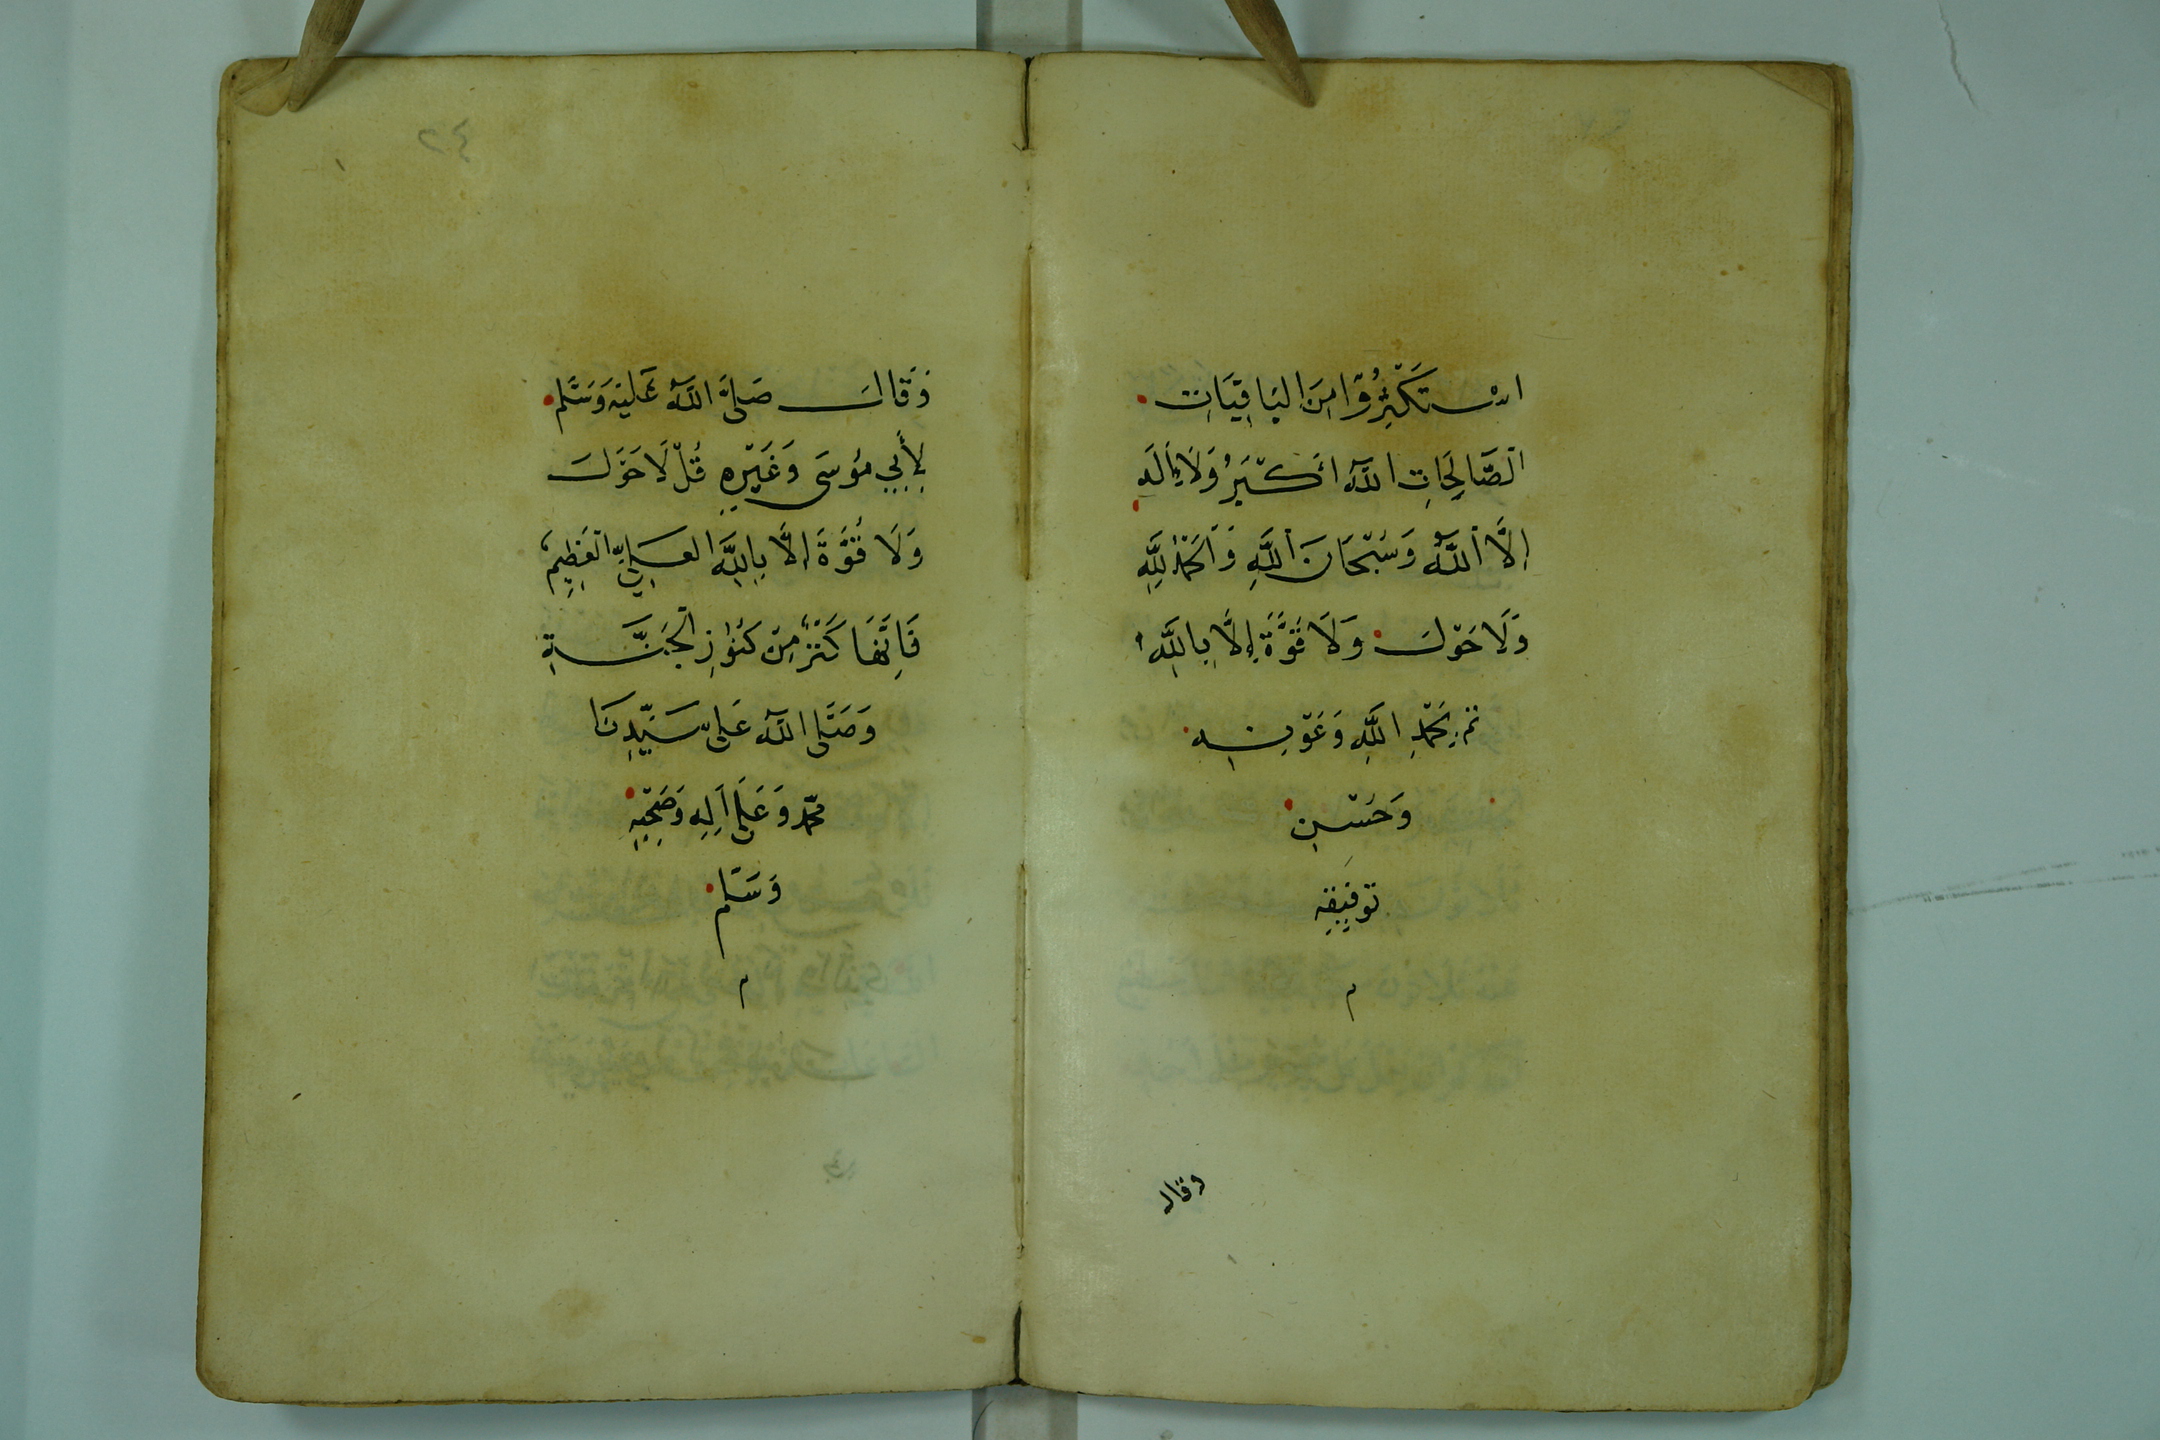 اسْتَكْثِرُوا مِنَ البَاقِيَاتِ
الصَّالِحَاتِ اللَّهُ أَكْبَرُ وَلَا إِلَهَ
إِلَّا اللَّهُ وَسُبْحَانَ اللَّهِ وَالْحَمْدُ لِلَّهِ
وَلَا حَوْلَ وَلَا قُوَّةَ إِلَّا بِاللَّهِ
تم بِحَمْدِ اللَّهِ وَعَوْنِهِ
وَحُسْنِ
تَوفِيقِهِ
م
وقال
٤٢
وَقَالَ صَلَّى اللَّهُ عَلَيْهِ وَسَلَّم
لِأَبِي مُوسَى وَغَيْرِهِ قُلْ لَا حَوْلَ
وَلَا قُوَّةَ إِلَّا بِاللَّهِ العَلِيِّ الْعَظِيمِ
فَإِنَّهَا كَنْزٌ مِنْ كُنُوزِ الْجَنَّةِ
وَصَلَّى اللَّهُ عَلَى سَيِّدِنَا
مُحَمَّدٍ وَعَلَى آلِهِ وَصَحْبِهِ
وَسَلَّم
م